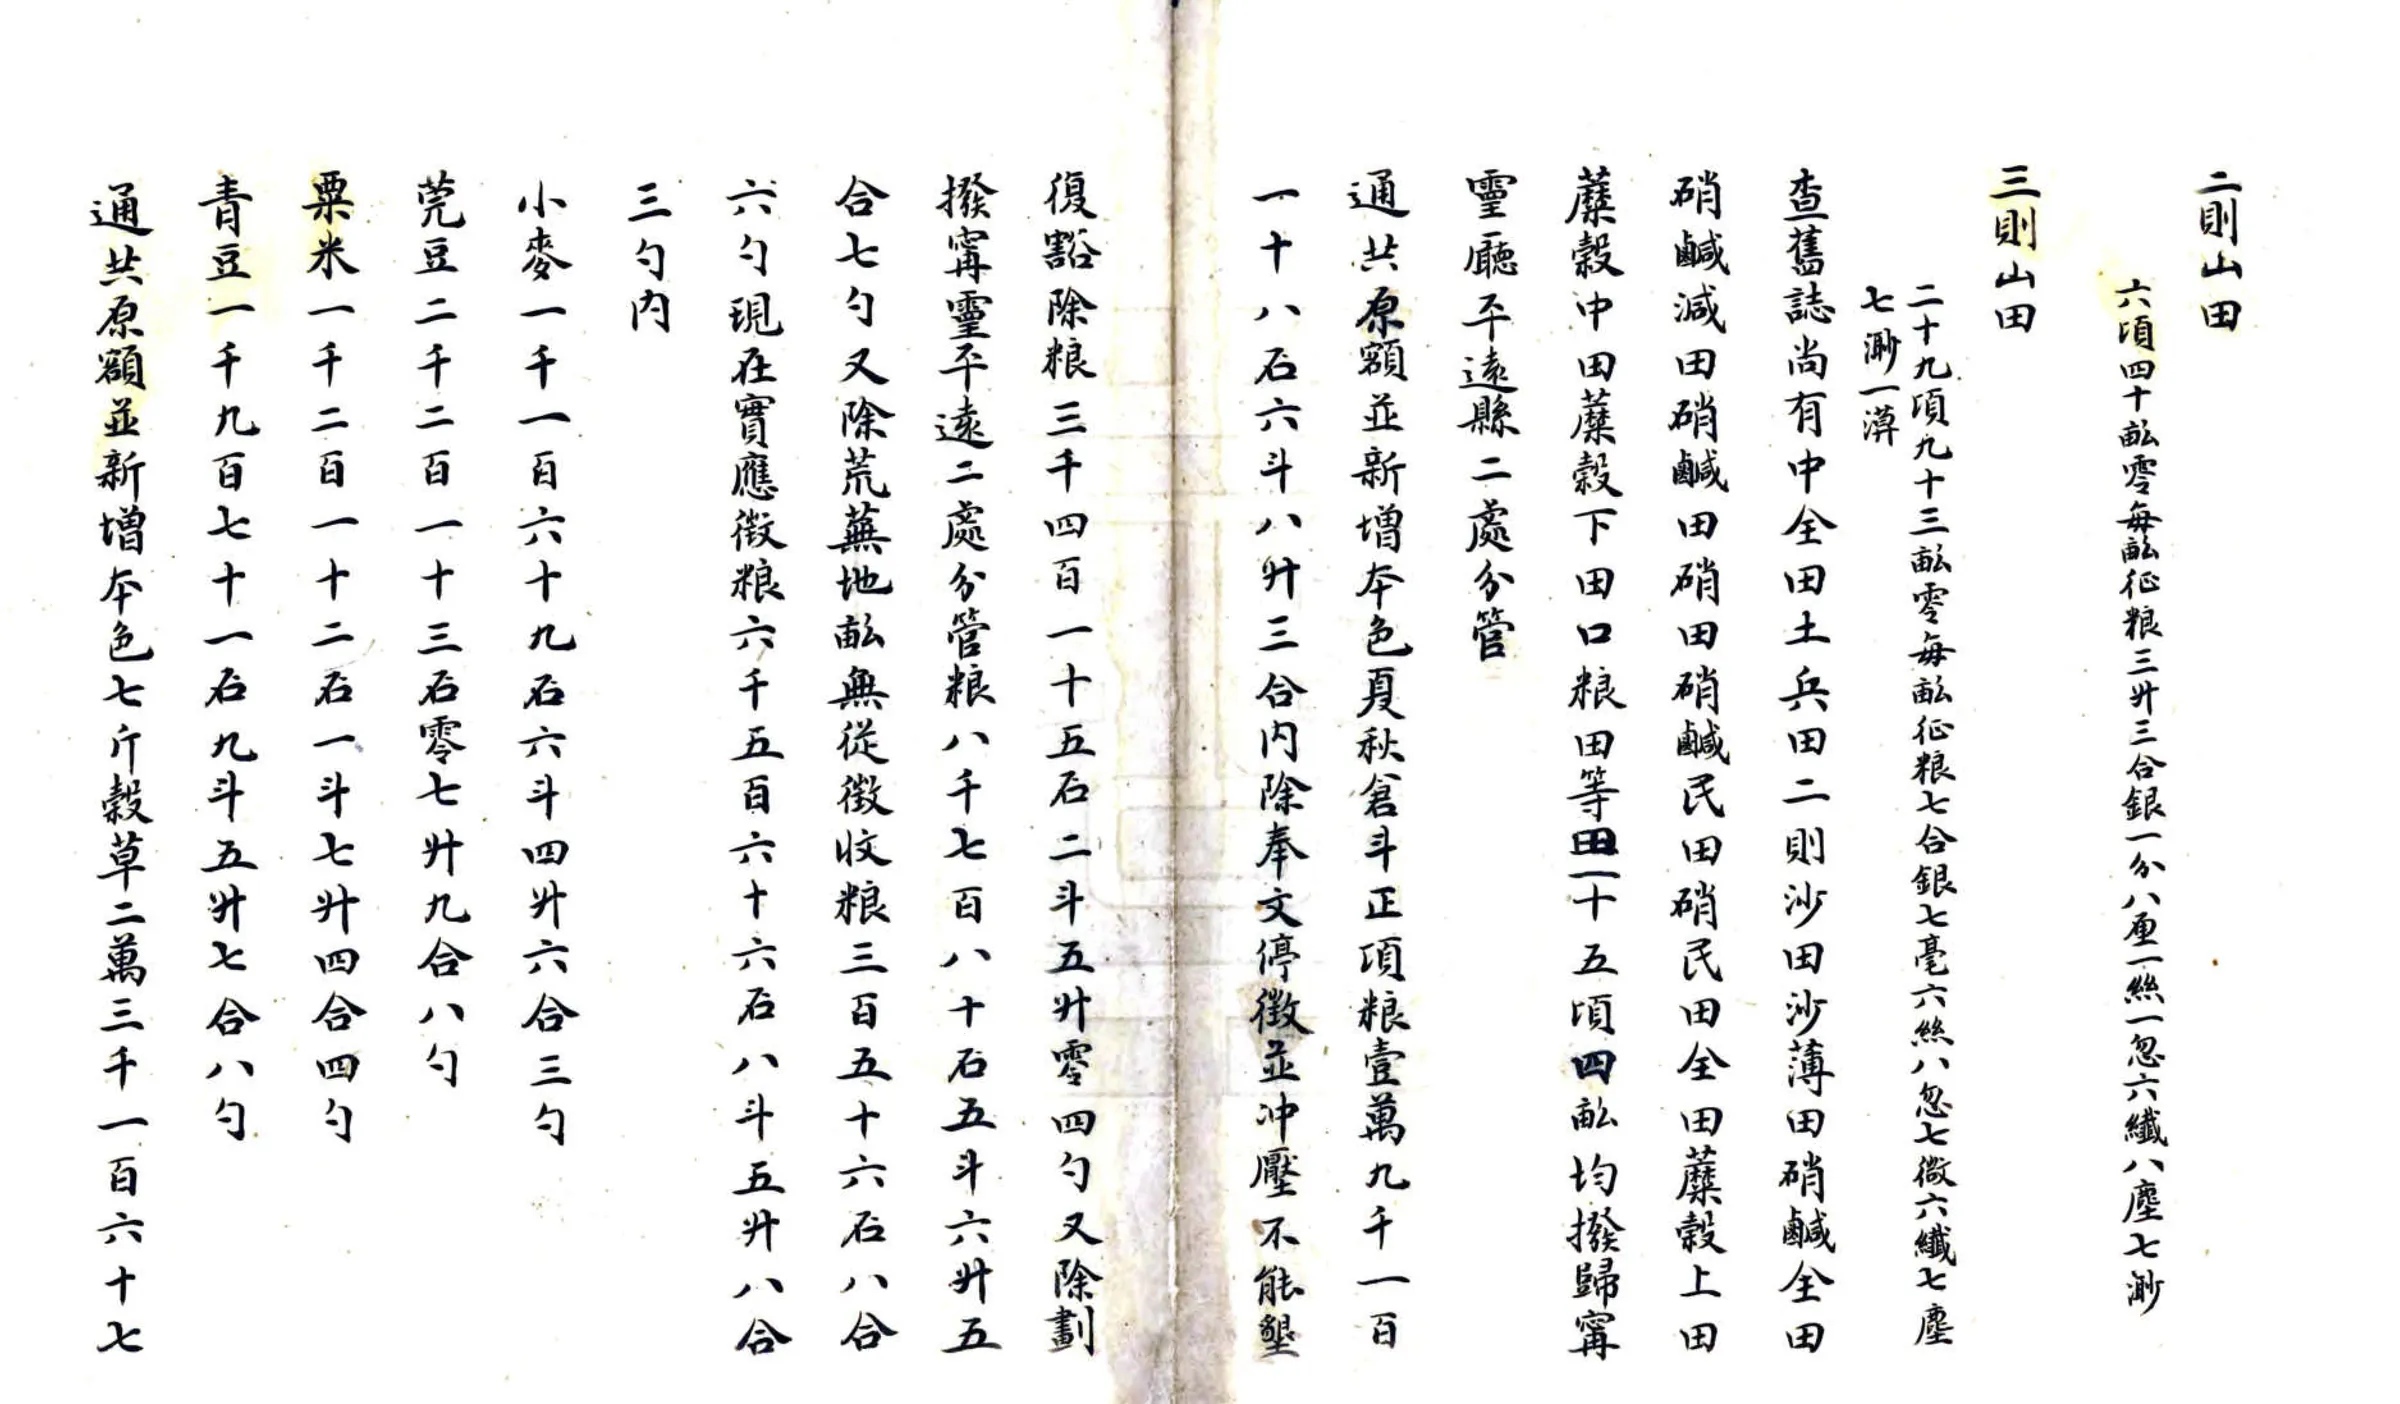 二則山田
六頃四十畝零每畝征粮三升三合銀一分八厘一絲一忽六纖八塵七渺
三則山田
二十九頃九十三畝零每畝征粮七合銀七毫六絲八忽七微六纖七塵
七渺一漠
查舊誌尚有中全田土兵田二則沙田沙薄田硝鹹全田
硝鹹減田硝鹹田硝田硝鹹民田硝民田全田蘪糓上田
蘪糓中田蘪糓下田口粮田等田一十五頃四畝均撥歸寗
靈廳平遠縣二處分管
通共原額並新增本色夏秋倉斗正項粮壹萬九千一百
一十八石六斗八升三合内除奉文停徵並冲壓不能墾
復豁除粮三千四百一十五石二斗五升零四勺又除劃
撥寗靈平遠二處分管粮八千七百八十石五斗六升五
合七勺又除荒蕪地畝無從徵收粮三百五十六石八合
六勺現在實應徵粮六千五百六十六石八斗五升八合
三勺内
小麥一千一百六十九石六斗四升六合三勺
莞豆二千二百一十三石零七升九合八勺
粟米一千二百一十二石一斗七升四合四勺
青豆一千九百七十一石九斗五升七合八勺
通共原額並新增本色七斤穀草二萬三千一百六十七